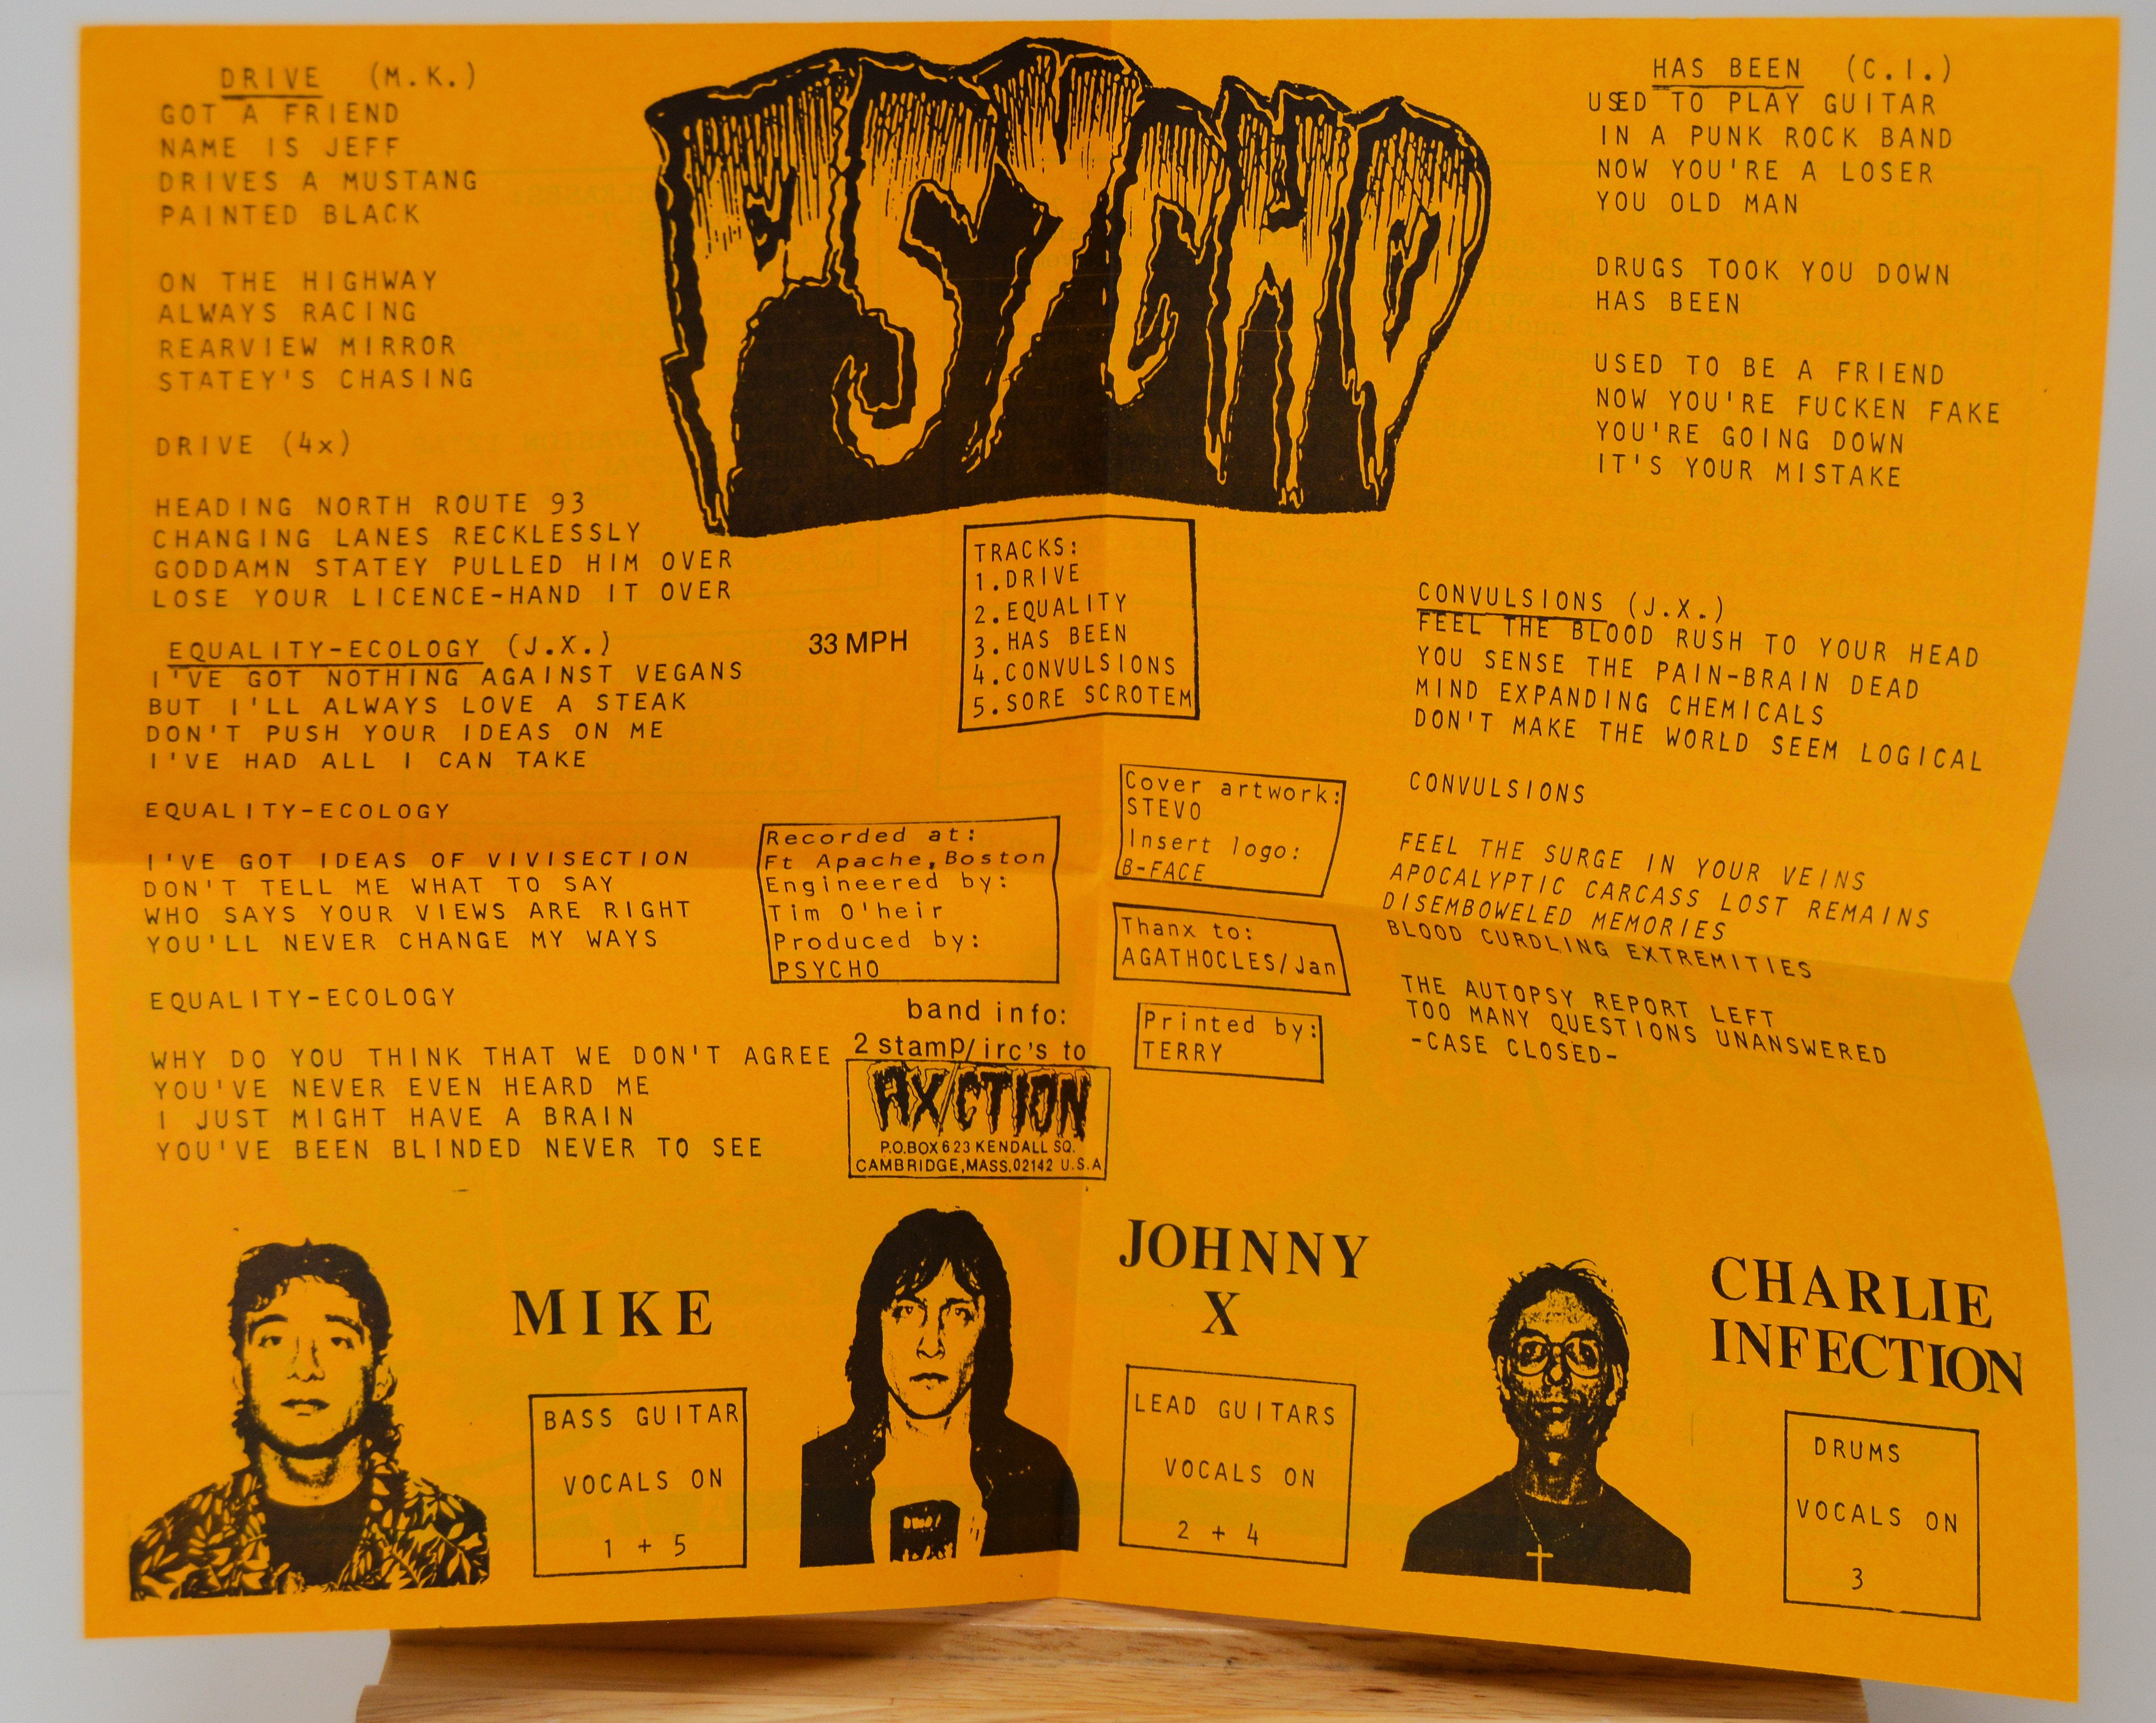 DRIVE (M.K.)
GOT A FRIEND
NAME IS JEFF
DRIVES A MUSTANG
PAINTED BLACK
ON THE HIGHWAY
ALWAYS RACING
REARVIEW MIRROR
STATEY'S CHASING
DRIVE (4x)
HEADING NORTH ROUTE 93
CHANGING LANES RECKLESSLY
GODDAMN STATEY PULLED HIM OVER
LOSE YOUR LICENCE-HAND IT OVER
EQUALITY-ECOLOGY (J.X.)
I'VE GOT NOTHING AGAINST VEGANS
BUT I'LL ALWAYS LOVE A STEAK
DON'T PUSH YOUR IDEAS ON ME
I'VE HAD ALL I CAN TAKE
EQUALITY-ECOLOGY
I'VE GOT IDEAS OF VIVISECTION
DON'T TELL ME WHAT TO SAY
WHO SAYS YOUR VIEWS ARE RIGHT
YOU'LL NEVER CHANGE MY WAYS
EQUALITY-ECOLOGY
WHY DO YOU THINK THAT WE DON'T AGREE
YOU'VE NEVER EVEN HEARD ME
I JUST MIGHT HAVE A BRAIN
YOU'VE BEEN BLINDED NEVER TO SEE
PSYCHO
TRACKS:
1.DRIVE
2.EQUALITY
3.HAS BEEN
4.CONVULSIONS
5.SORE SCROTEM
33 MPH
Recorded at:
Ft Apache, Boston
Engineered by:
Tim O'heir
Produced by:
PSYCHO
Cover artwork:
STEVO
Insert logo:
B-FACE
Thanx to:
AGATHOCLES/Jan
Printed by:
TERRY
band info:
2 stamp/irc's to
AX/CTION
P.O.BOX 623 KENDALL SQ.
CAMBRIDGE,MASS.02142 U.S.A
HAS BEEN (C.I.)
USED TO PLAY GUITAR
IN A PUNK ROCK BAND
NOW YOU'RE A LOSER
YOU OLD MAN
DRUGS TOOK YOU DOWN
HAS BEEN
USED TO BE A FRIEND
NOW YOU'RE FUCKEN FAKE
YOU'RE GOING DOWN
IT'S YOUR MISTAKE
CONVULSIONS (J.X.)
FEEL THE BLOOD RUSH TO YOUR HEAD
YOU SENSE THE PAIN-BRAIN DEAD
MIND EXPANDING CHEMICALS
DON'T MAKE THE WORLD SEEM LOGICAL
CONVULSIONS
FEEL THE SURGE IN YOUR VEINS
APOCALYPTIC CARCASS LOST REMAINS
DISEMBOWELED MEMORIES
BLOOD CURDLING EXTREMITIES
THE AUTOPSY REPORT LEFT
TOO MANY QUESTIONS UNANSWERED
-CASE CLOSED-
MIKE
BASS GUITAR
VOCALS ON
1 + 5
JOHNNY
X
LEAD GUITARS
VOCALS ON
2 + 4
CHARLIE
INFECTION
DRUMS
VOCALS ON
3